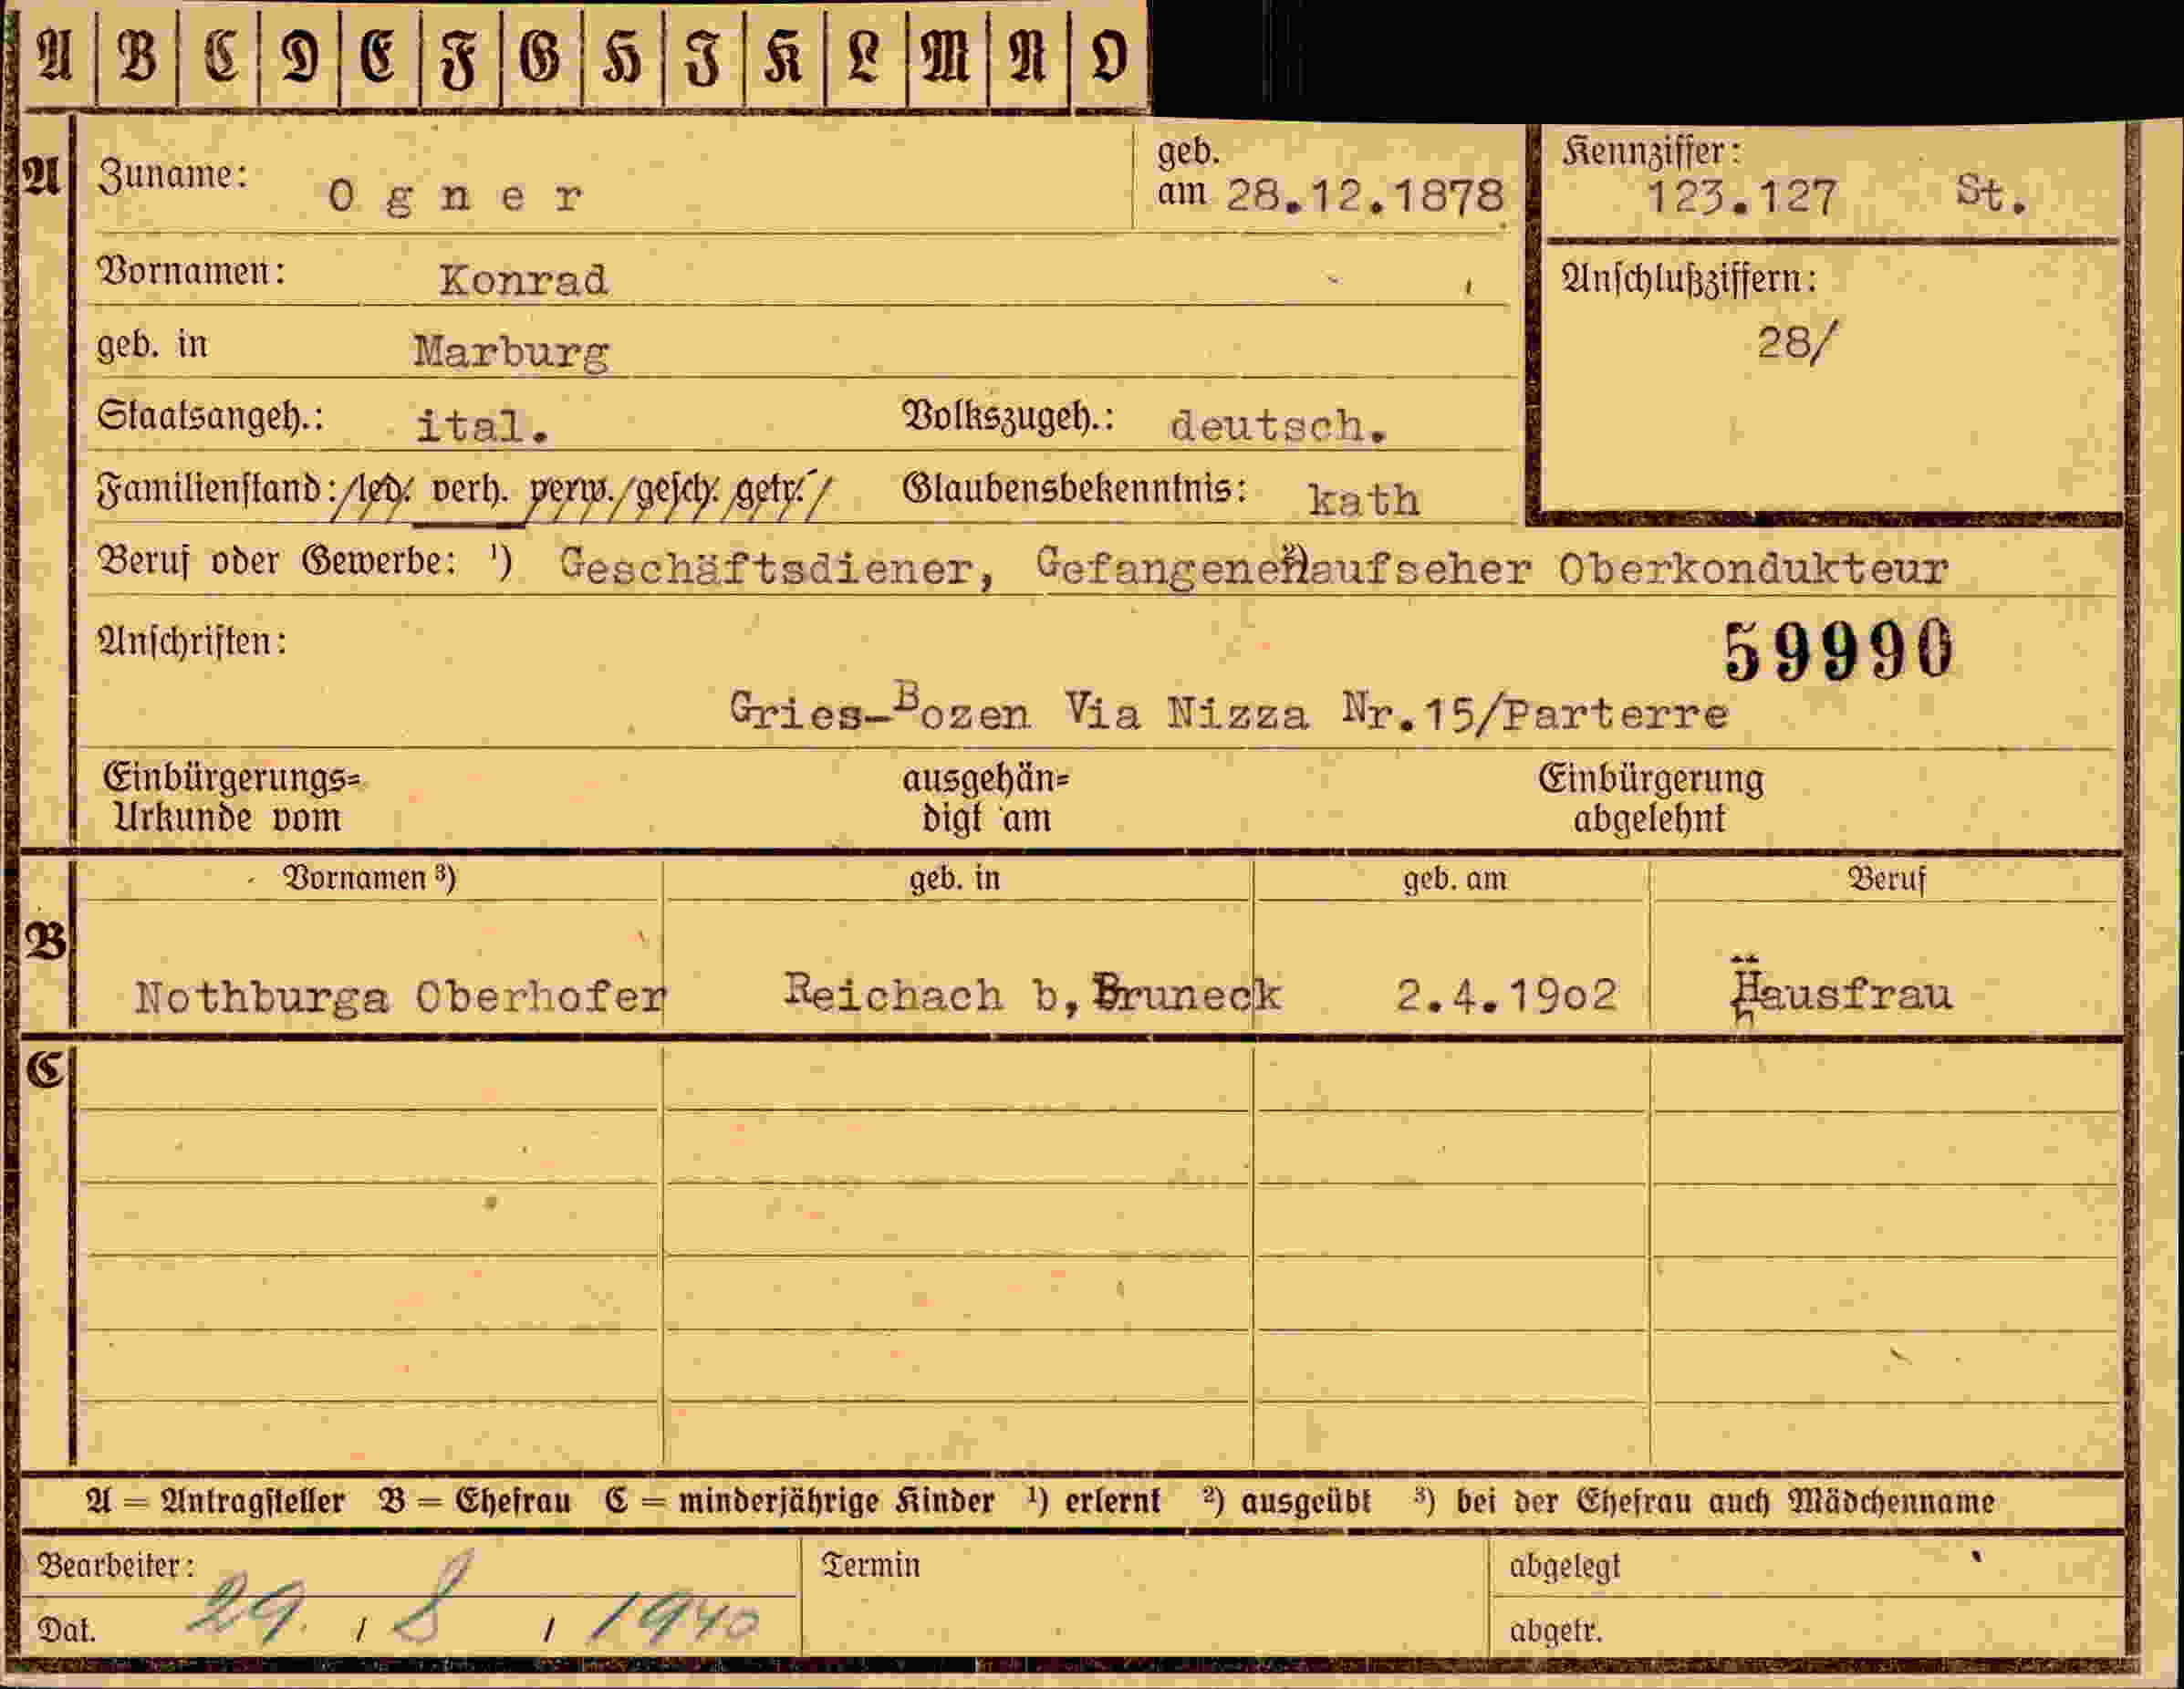 A B C D E F G H J K L M N O
A Zuname: Ogner geb. am 28.12.1878 Kennziffer: 123.127 St.
Vornamen: Konrad Anschlußziffern:
geb. in Marburg 28/
Staatsangeh.: ital. Volkszugeh.: deutsch.
Familienstand: led. verh. verw. gesch. getr. Glaubensbekenntnis: kath
Beruf oder Gewerbe: ¹) Geschäftsdiener, Gefangenenaufseher ²) Oberkondukteur
Anschriften: 59990
Gries-Bozen Via Nizza Nr.15/Parterre
Einbürgerungs= ausgehän= Einbürgerung
Urkunde vom digt am abgelehnt
Vornamen ³) geb. in geb. am Beruf
B Nothburga Oberhofer Reichach b, Bruneck 2.4.19o2 Hausfrau
C
A = Antragsteller B = Ehefrau C = minderjährige Kinder ¹) erlernt ²) ausgeübt ³) bei der Ehefrau auch Mädchenname
Bearbeiter: Termin abgelegt
Dat. 29. / 8 / 1940 abgetr.